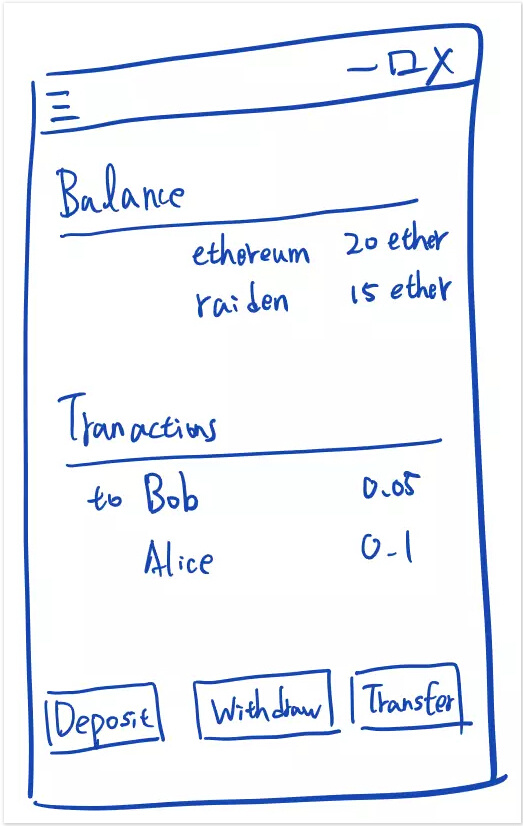 Balance
ethereum 20 ether
raiden 15 ether
Tranactions
to Bob 0.05
Alice 0-1
Deposit Withdraw Transfer